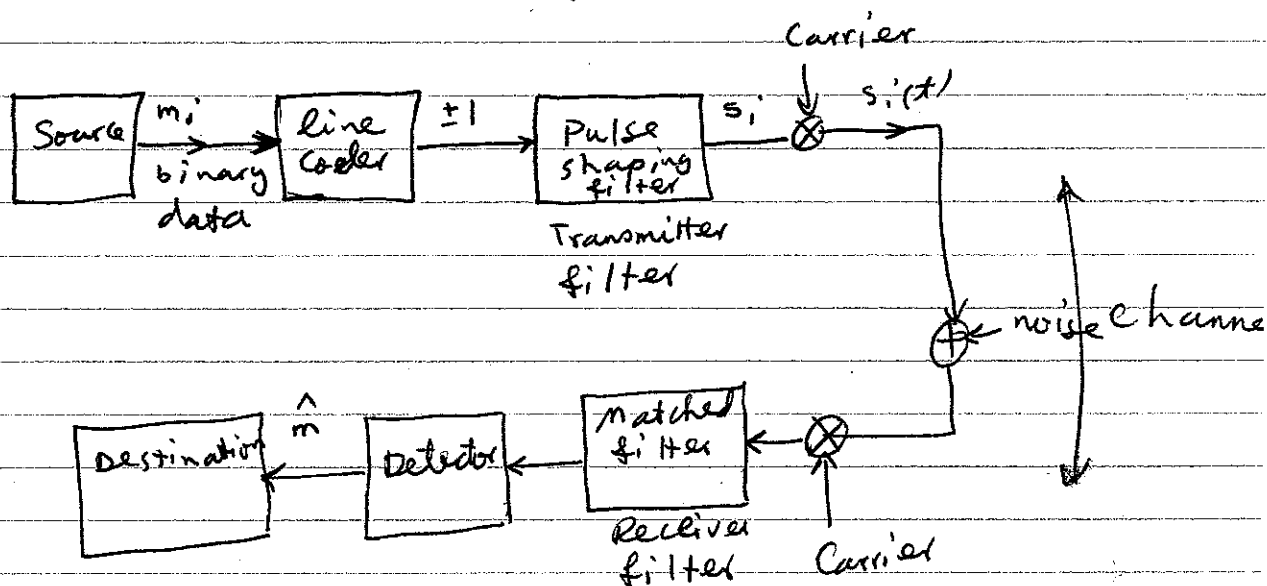 Carrier
Source
m_i
binary
data
line
coder
±1
Pulse
shaping
filter
Transmitter
filter
s_i
s_i(t)
noise
Channe
Carrier
Matched
filter
Receiver
filter
Detector
m̂
Destination